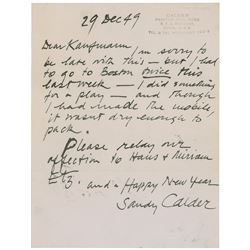 CALDER
29 Dec 49
Dear Kaufmann, I'm sorry to
be late with this — but I had
to go to Boston twice this
last week — I did something
for a play — and though
I had made the mobile
it wasn't dry enough to
pack.
Please relay our
affection to Hans & Miriam
Etc. and a Happy New Year
Sandy Calder